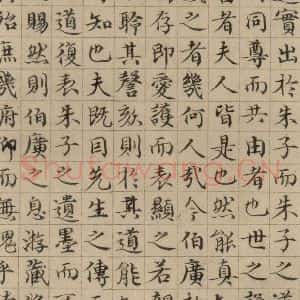 實出於
朱子之
同尊而共由者也世之
者夫人皆是也然能真
之者幾何人哉今伯廣
存即愛護而表顯之若
聆其謦欬則於其道能
知也夫既因先生之傳
道復表朱子之遺墨而
賜然則伯廣之息游藏
庶幾府仰而無愧乎
Shufawang.CN